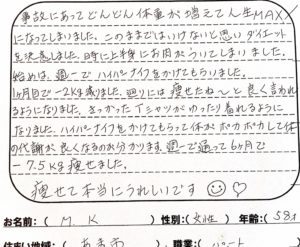 事故にあってどんどん体重が増えて人生MAX
になってしまいました。このままではいけないと思いダイエット
を決意しました。特に上半身にお肉がついてしまいました。
始めは、週一でハイパーナイフをかけてもらいました。
1ヶ月目で-2kg減りました。廻りには痩せたね〜と良く言われ
るようになりました。きつかったTシャツがゆったり着れるように
なりました。ハイパーナイフをかけてもらって体がポカポカして体
の代謝が良くなるのがわかります。週一で通って6ヶ月で
-7.5kg痩せました。
痩せて本当にうれしいです
お名前:( M. K )性別:(女性)年齢:(58才
住まい地域:( あま市 職業:(パート